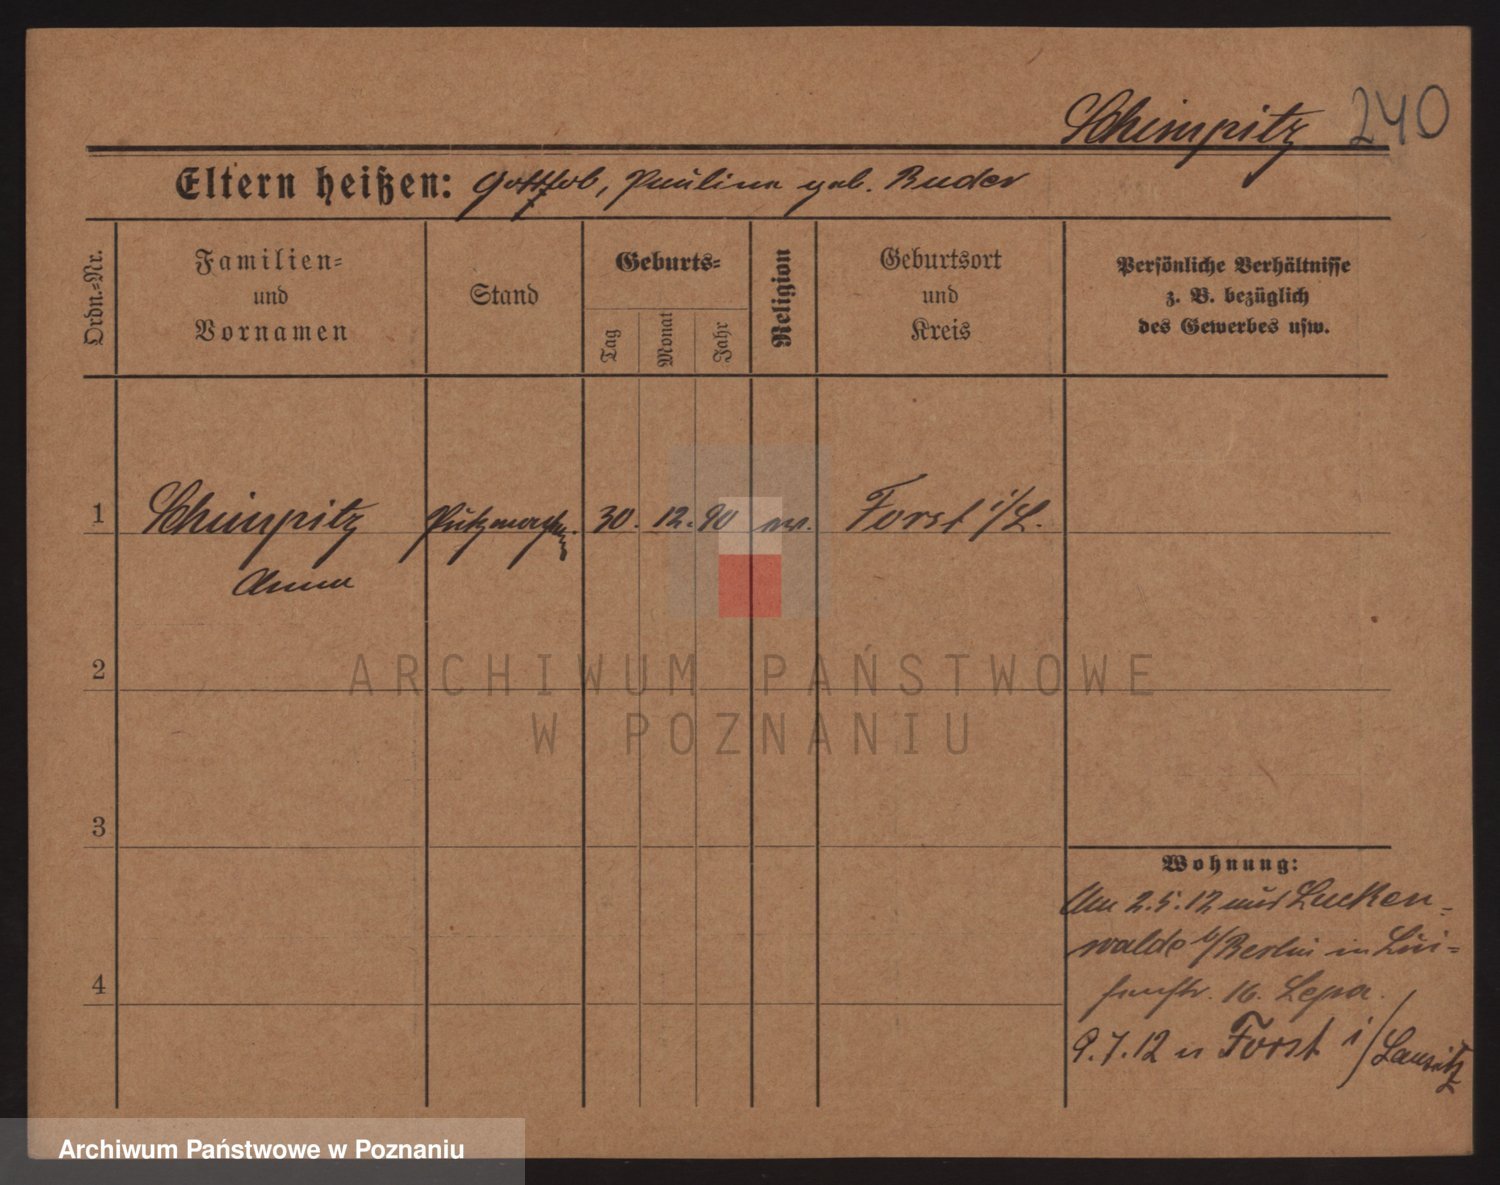 Schimpitz 240
Eltern heißen: Gottlob, Pauline geb. Buder
Ordn.=Nr.
Familien=
und
Vornamen
Stand
Geburts=
Tag
Monat
Jahr
Religion
Geburtsort
und
Kreis
Persönliche Verhältnisse
z. B. bezüglich
des Gewerbes usw.
1 Schimpitz 30. 12. 90 ev. Forst i/L.
Anna
2
ARCHIWUM PAŃSTWOWE
W POZNANIU
3
Wohnung:
Am 2.5.12 aus Lucken=
walde b/Berlin in Lui=
senstr. 16.
4
9.7.12 n Forst i/Lausitz
Archiwum Państwowe w Poznaniu